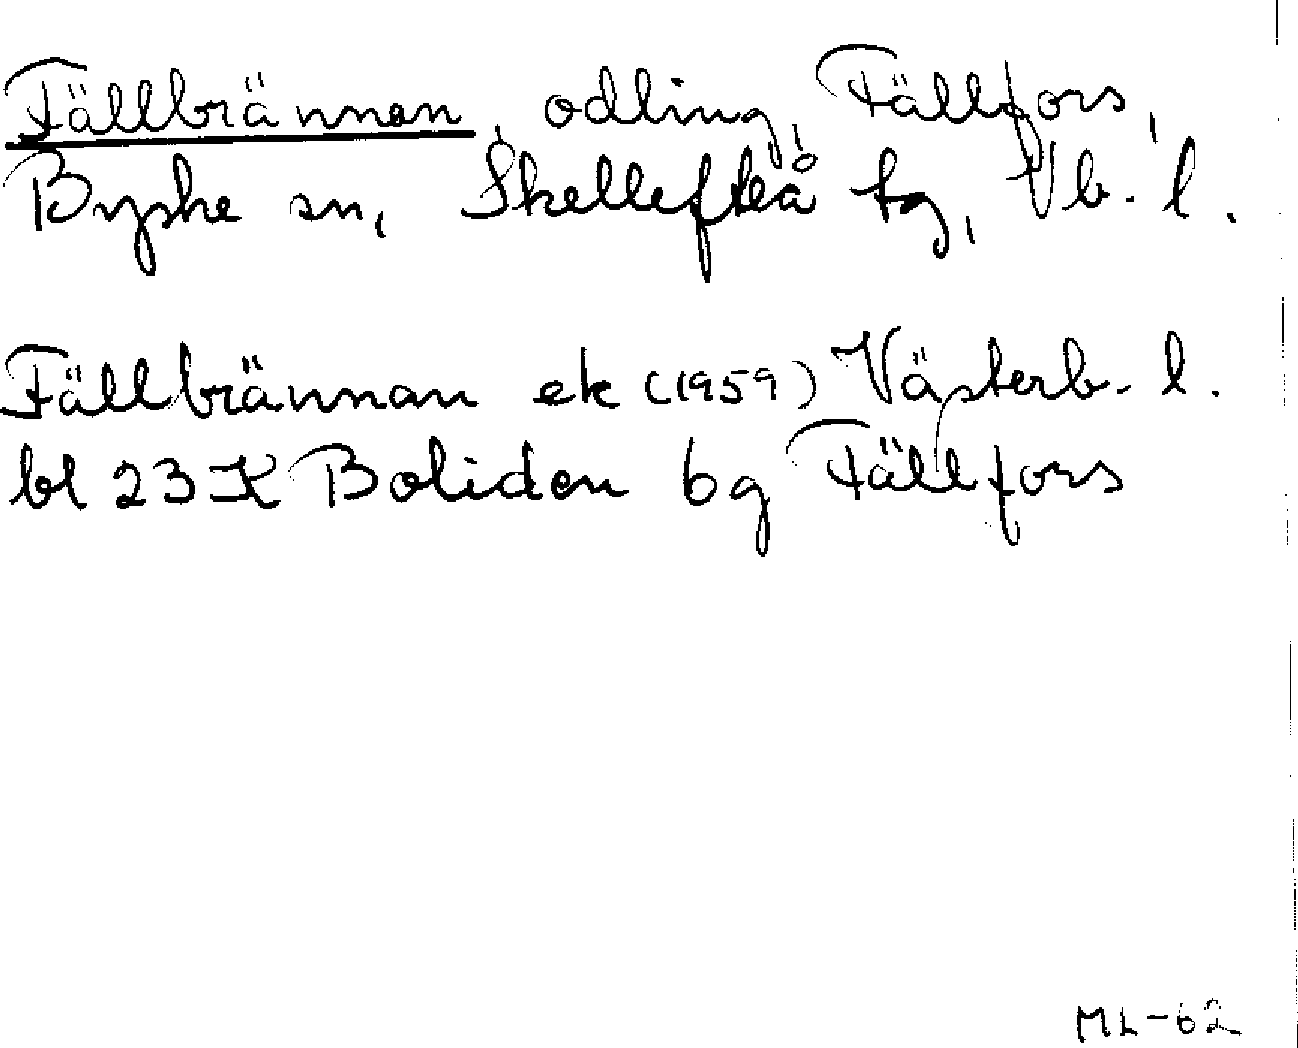 Fällbrännan, odling, Fällfors,
Byske sn, Skellefteå tg, Vb. l.
Fällbrännan ek (1959) Västerb. l.
bl 23 K Boliden bg Fällfors
ML-62